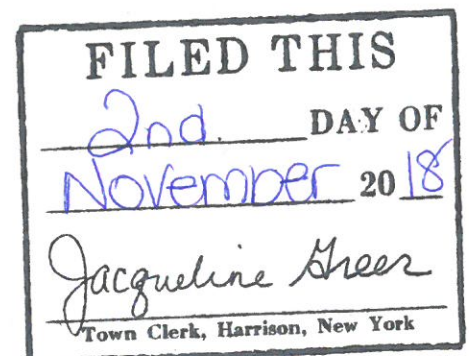 FILED THIS
2nd. DAY OF
November 20 18
Jacqueline Greer
Town Clerk, Harrison, New York